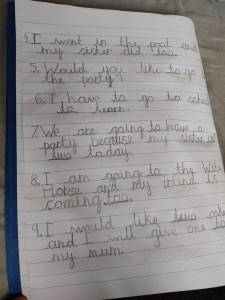 4. I want in the pool and
my sister did too.
5. Would you like to go
the party?
6. I have to go to scho
to learn.
7. We are going to have a
party because my sister is
two today.
8. I am going to the
Hobse and my friend is
coming too.
9. I would like two
and I will give one to
my mum.